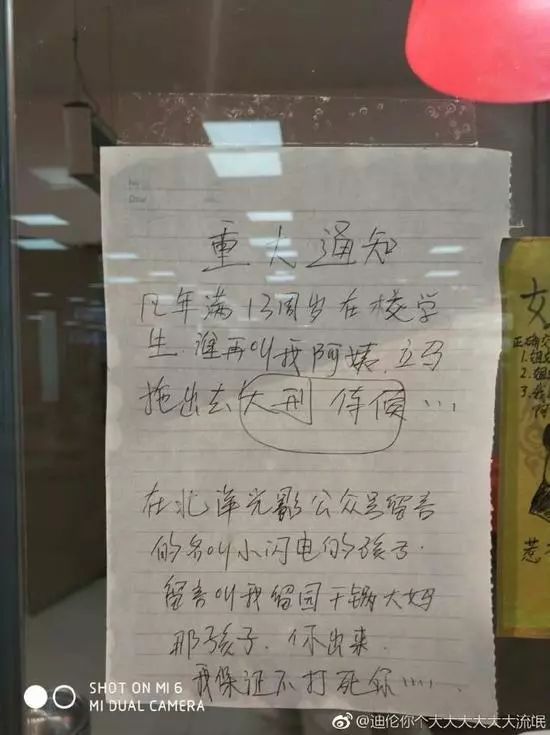 重大通知
凡年满13周岁在校学
生.谁再叫我阿姨.立马
拖出去大刑 侍候…
在北洋光影公众号留言
的名叫小闪电的孩子.
留言叫我留园干锅大妈
那孩子.你出来.
我保证不打死你……
女
正确交
1.姐
2.姐
3.我
阿
惹
SHOT ON MI 6
MI DUAL CAMERA
@迪伦你个大大大大大大流氓